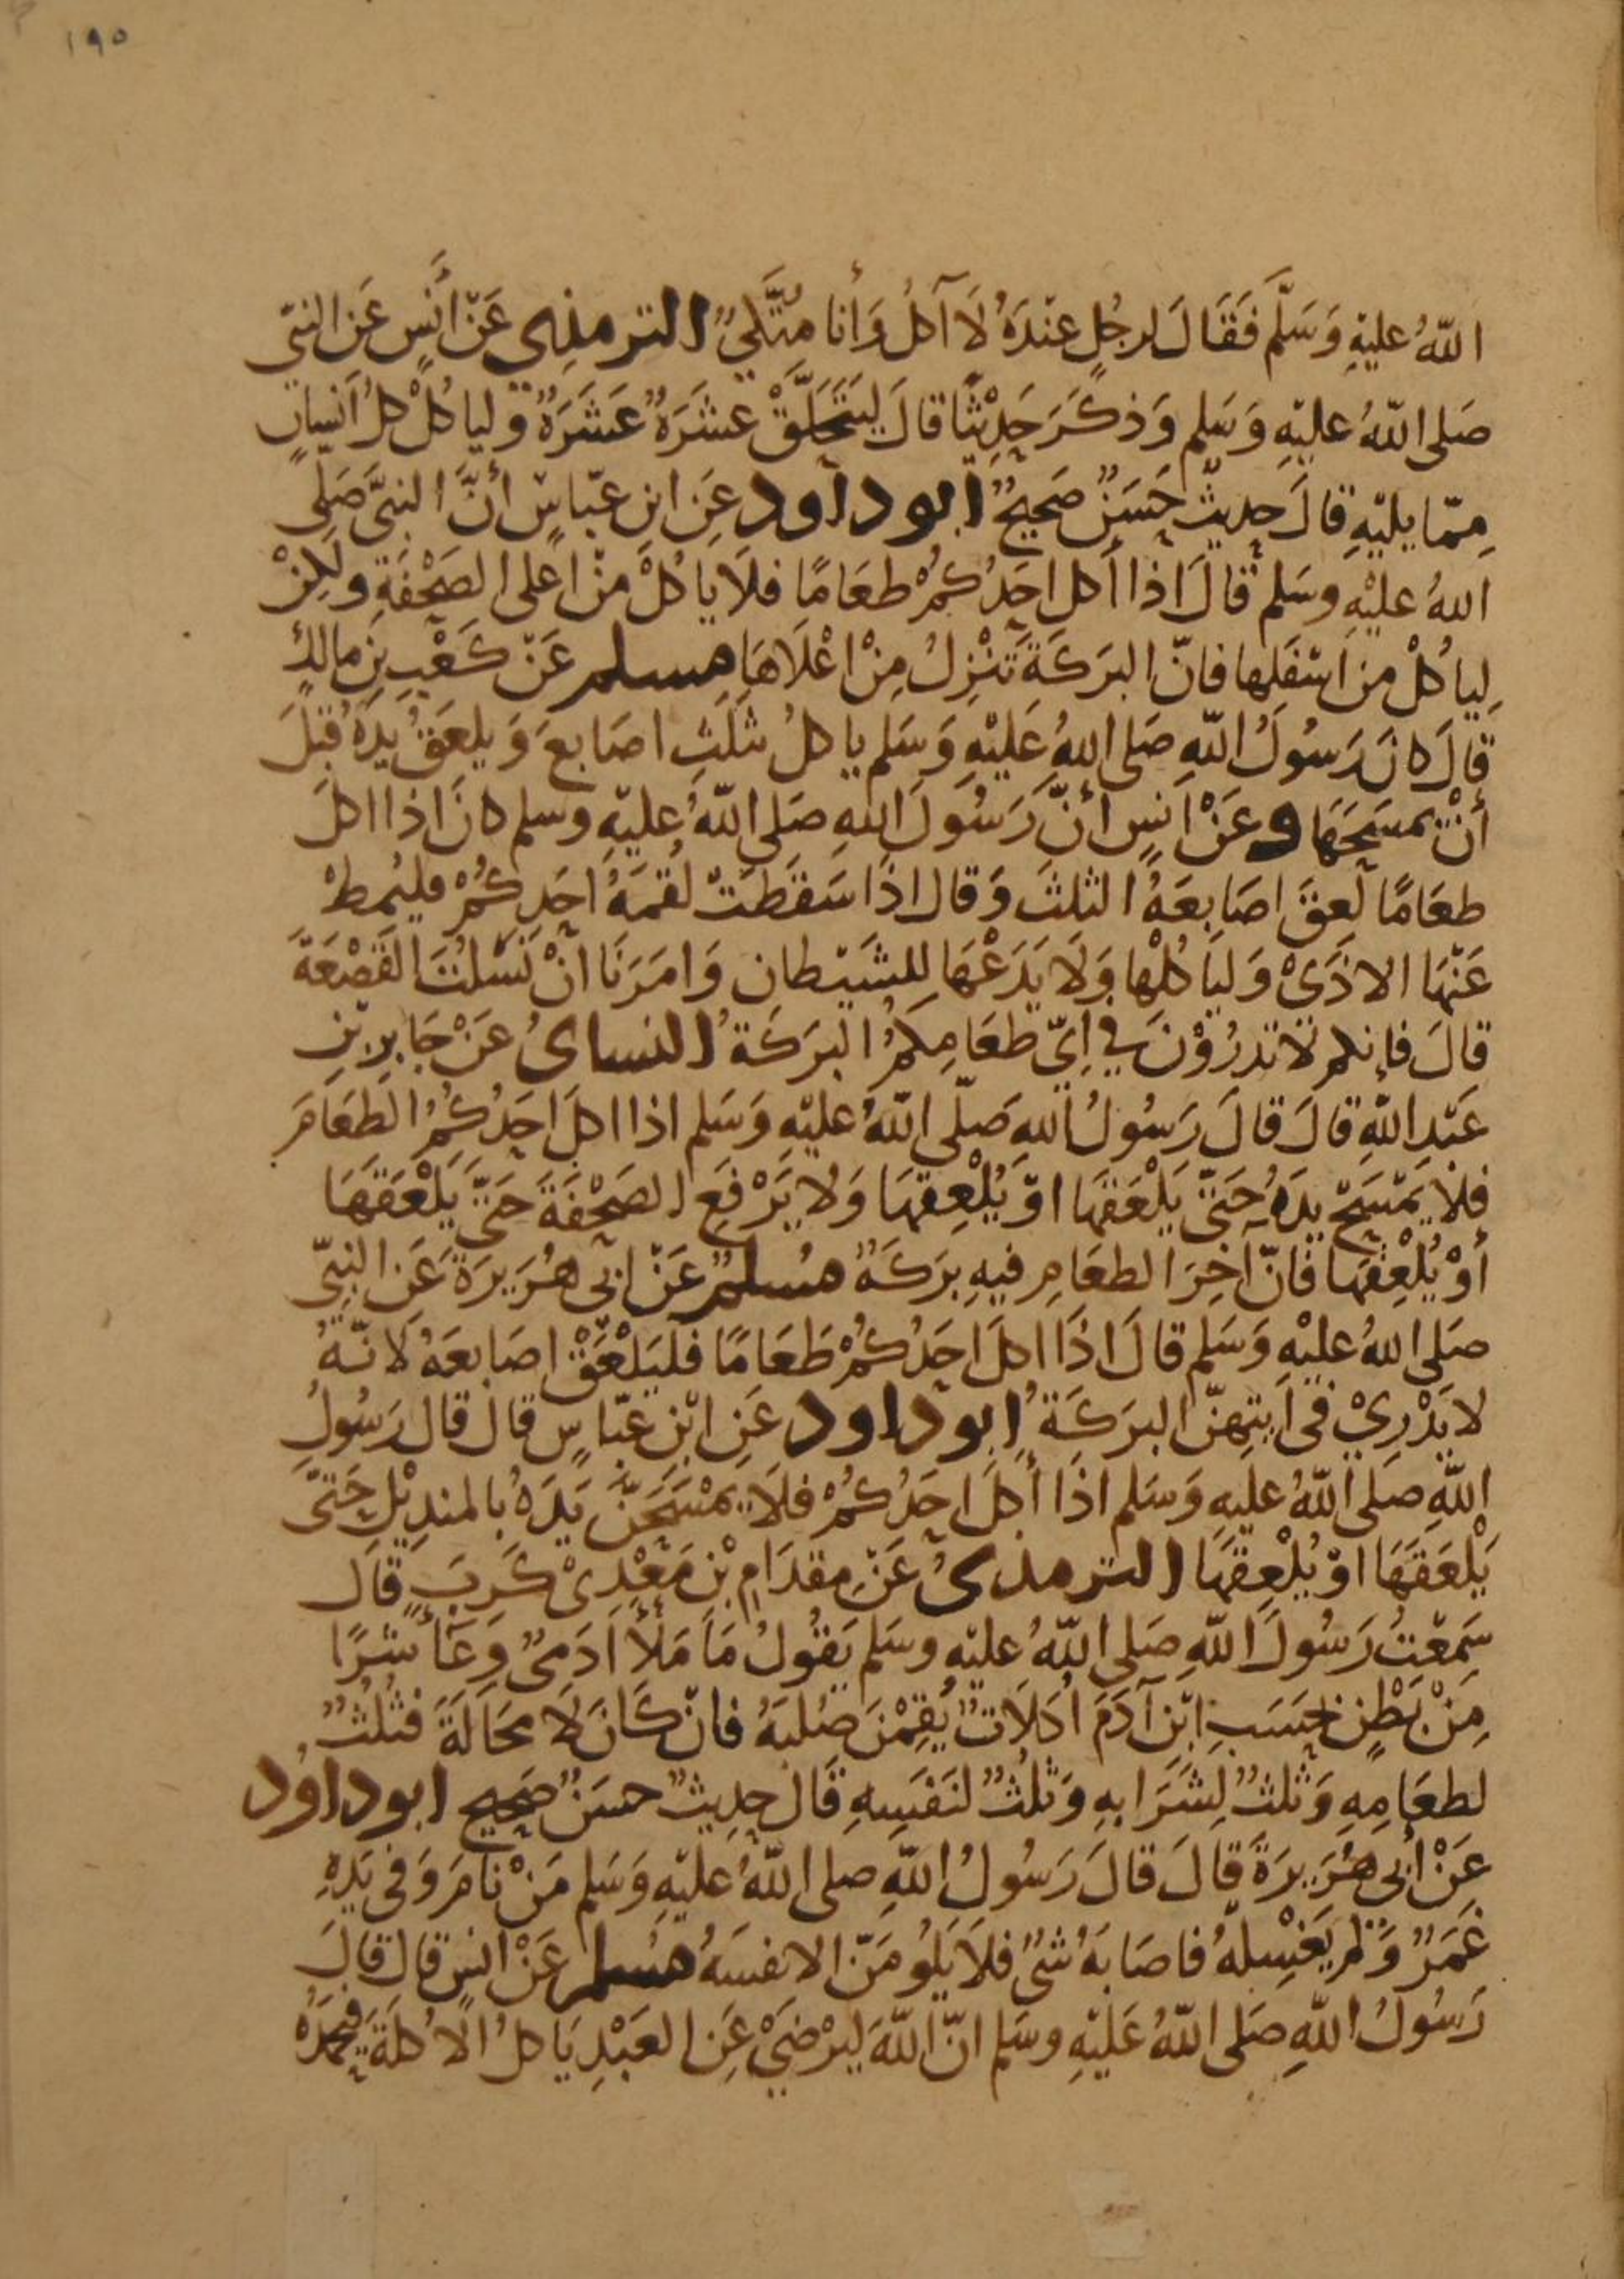 ١٩٥
اللّهُ عليْهِ وَسَلَّمَ فَقَالَ لرجُلٍ عنْدَهُ لَا آكلُ وَأنا مُتَّكِيٌ الترمذى عَنْ أنَسٍ عَن النبّى
صَلى اللّهُ عليْهِ وَسَلم وَذكَرَ حَدِيْثًا قالَ لِيَتَحَلَّقْ عَشَرَةٌ عَشَرَةٌ وليا كلْ كلُ اَنسِانٍ
مِمّا يليْهِ قالَ حديثٌ حَسَنٌ صَحيحٌ ابوداود عَن ابن عبّاسٍ أنَّ النبىَّ صَلى
اللهُ عليْهِ وسَلم قالَ اذا أكل احَدُكُمْ طعَامًا فلَا ياكلْ مِنْ اعلى الصَحْفَةِ ولٰكِنْ
لياكلْ من اسْفَلِها فانّ البرَكَةَ تَنْزِلُ مِنْ اعْلَاهَا مسلم عَنْ كَعْبِ بنِ مالكٍ
قالَ كانَ رَسُولُ اللّهِ صَلى اللهُ عَليْهِ وَسَلم ياكلُ بثَلَثِ اصَابعَ وَيلعَقُ يدَهُ قبْلَ
أنْ يمسَحَهَا وعَنْ اَنسٍ أنَّ رَسُولَ اللهِ صَلى اللّهُ عليْهِ وسلم كانَ اذا اكلَ
طعَامًا لَعِقَ اصَابِعَهُ الثلثَ وَقالَ اذَا سَقَطَتْ لُقمَةُ احَدِكُمْ فليُمِطْ
عَنْهَا الاذَىْ وَلياكلْها وَلَا يَدَعْهَا لِلشَيْطان وَامَرَنَا انْ نَسْلُتَ القَصْعَةَ
قالَ فإنكم لَا تدرُوْنَ في اىِّ طعَامِكمُ البرَكَةُ النساىُ عَنْ جَابربْنِ
عَبْدِ اللّهِ قالَ قالَ رَسُولُ اللهِ صَلّى اللّهُ عليْهِ وَسَلم اذا اكلَ احَدُكُمُ الطعَامَ
فلَا يَمْسَحْ يدَهُ حَتّى يَلْعَقَهَا اوْ يُلْعِقهَا وَلا يَرْفَعِ الصَحْفَةَ حَتَّى يَلْعَقهَا
أوْ يُلْعِقَهَا فَانّ آخِرَ الطعَامِ فيهِ برَكَةٌ مُسلمٌ عَنْ ابى هُرَيرَةَ عَن النبِىّ
صَلى اللهُ عليْهِ وَسَلم قالَ اذَا اكلَ احَدُكُمْ طَعَامًا فليَلْعَقْ اصَابعَهُ لَانّهُ
لا يَدْرِيْ فى اَيتِهنّ البرَكَةُ ابوداود عَنِ ابْنِ عبّاسٍ قالَ قالَ رَسُولُ
اللّهِ صَلى اللّهُ عليهِ وَسَلم اذَا أكلَ احَدُكُمْ فلَا يمْسَحَنَّ يَدَهُ بالمندِيْلِ حَتىّ
يَلْعَقَهَا اوْ يُلْعِقهَا الترمذىُ عَنْ مِقدَامِ بْنِ مَعْدِىْ كَرِبَ قالَ
سَمِعْتُ رَسُولَ اللّهِ صَلى اللّهُ عليْهِ وسَلم يَقُولُ مَا مَلأَ آدَمىٌ وِعَأً شرًا
مِنْ بَطْنٍ بحَسَبِ ابْنِ آدَمَ اُكلَاتٌ يُقِمْنَ صُلبَهُ فانْ كَانَ لَا مَحَالَةَ فثلُثٌ
لطعَامِهِ وَثلثٌ لِشَرَابهِ وَثلُثٌ لنَفَسِهِ قَالَ حِديثٌ حسَنٌ صَحِيح ابوداوُد
عَنْ أبى هُرَيرَةَ قالَ قالَ رَسُولُ اللّهِ صلى اللّهُ عليْهِ وَسَلم مَنْ نامَ وَفى يَدِهِ
غَمَرٌ وَلم يَغْسِلهُ فاصَابَهُ شىٌ فلَا يَلُومَنّ الا نفسَهُ مسُلم عَنْ انسٍ قالَ قالَ
رَسُولُ اللّهِ صَلى اللّهُ عَليْهِ وسَلم انّ اللّهَ ليَرْضَىْ عَنِ العَبْدِ يَاكلُ الاكلَةَ فيَحْمَدُهُ